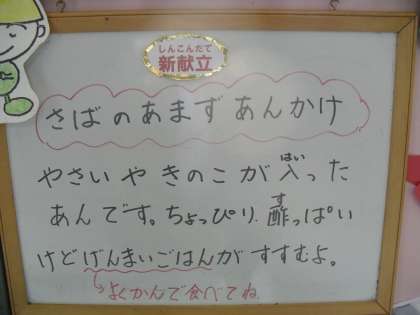 しんこんだて
新献立
さばのあまずあんかけ
はい
やさいやきのこが入った
す
あんです。ちょっぴり酢っぱい
けどげんまいごはんがすすむよ。
よくかんで食べてね